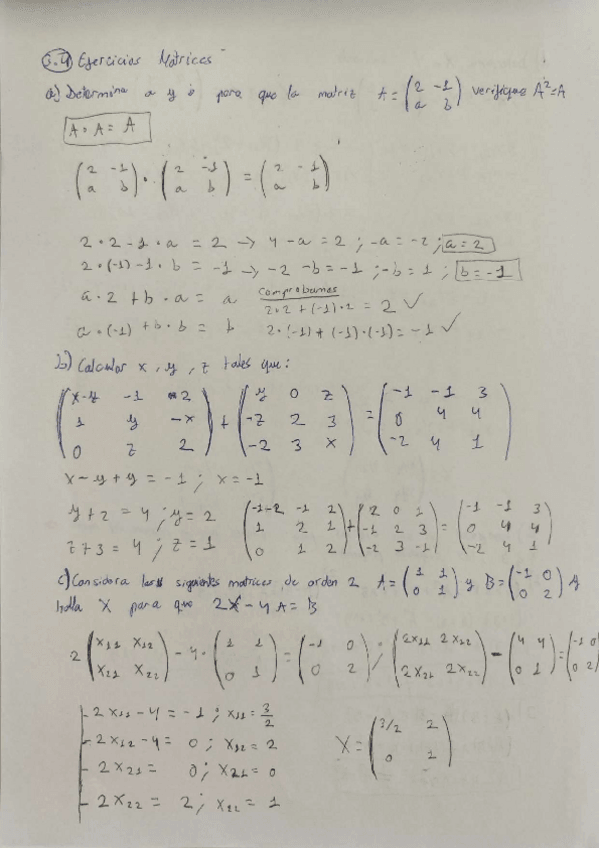 3.4 Ejercicios Matrices
a) Determina a y b para que la matriz A = (2 -1 / a b) verifique A²=A
A · A = A
(2 -1 / a b) · (2 -1 / a b) = (2 -1 / a b)
2 · 2 - 1 · a = 2 → 4 - a = 2 ; -a = -2 ; a = 2
2 · (-1) - 1 · b = -1 → -2 - b = -1 ; -b = 1 ; b = -1
a · 2 + b · a = a comprobamos 2·2 + (-1)·2 = 2 ✓
a · (-1) + b · b = b 2·(-1) + (-1)·(-1) = -1 ✓
b) Calcular x, y, z tales que:
(x-y -1 2 / 1 y -x / 0 z 2) + (y 0 z / -z 2 3 / -2 3 x) = (-1 -1 3 / 0 4 4 / -2 4 1)
x - y + y = -1 ; x = -1
y + 2 = 4 ; y = 2
z + 3 = 4 ; z = 1 (-1-2 -1 2 / 1 2 1 / 0 1 2) + (2 0 1 / -1 2 3 / -2 3 -1) = (-1 -1 3 / 0 4 4 / -2 4 1)
c) Considera las siguientes matrices de orden 2 A = (1 1 / 0 1) y B = (-1 0 / 0 2) y
halla X para que 2X - 4A = B
2 (x11 x12 / x21 x22) - 4 · (1 1 / 0 1) = (-1 0 / 0 2) ; (2x11 2x12 / 2x21 2x22) - (4 4 / 0 1) = (-1 0 / 0 2)
- 2x11 - 4 = -1 ; x11 = 3/2
- 2x12 - 4 = 0 ; x12 = 2
- 2x21 = 0 ; x21 = 0
- 2x22 = 2 ; x22 = 1
X = (3/2 2 / 0 1)